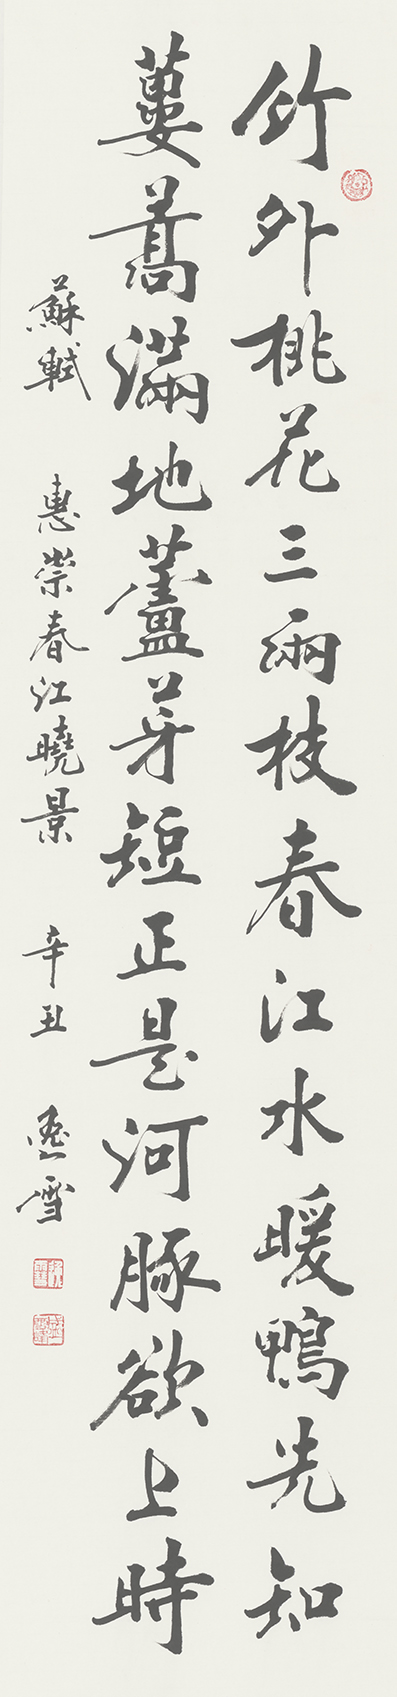 竹外桃花三兩枝春江水暖鴨先知
蔞蒿滿地蘆芽短正是河豚欲上時
蘇軾 惠崇春江曉景 辛丑 雪